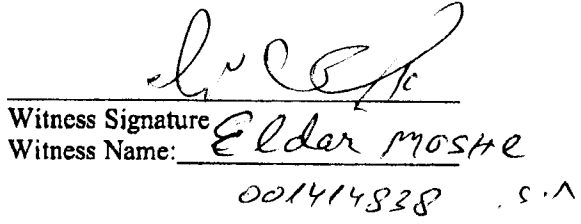 Witness Signature
Witness Name: Eldar Moshe
001414838 ת.ז